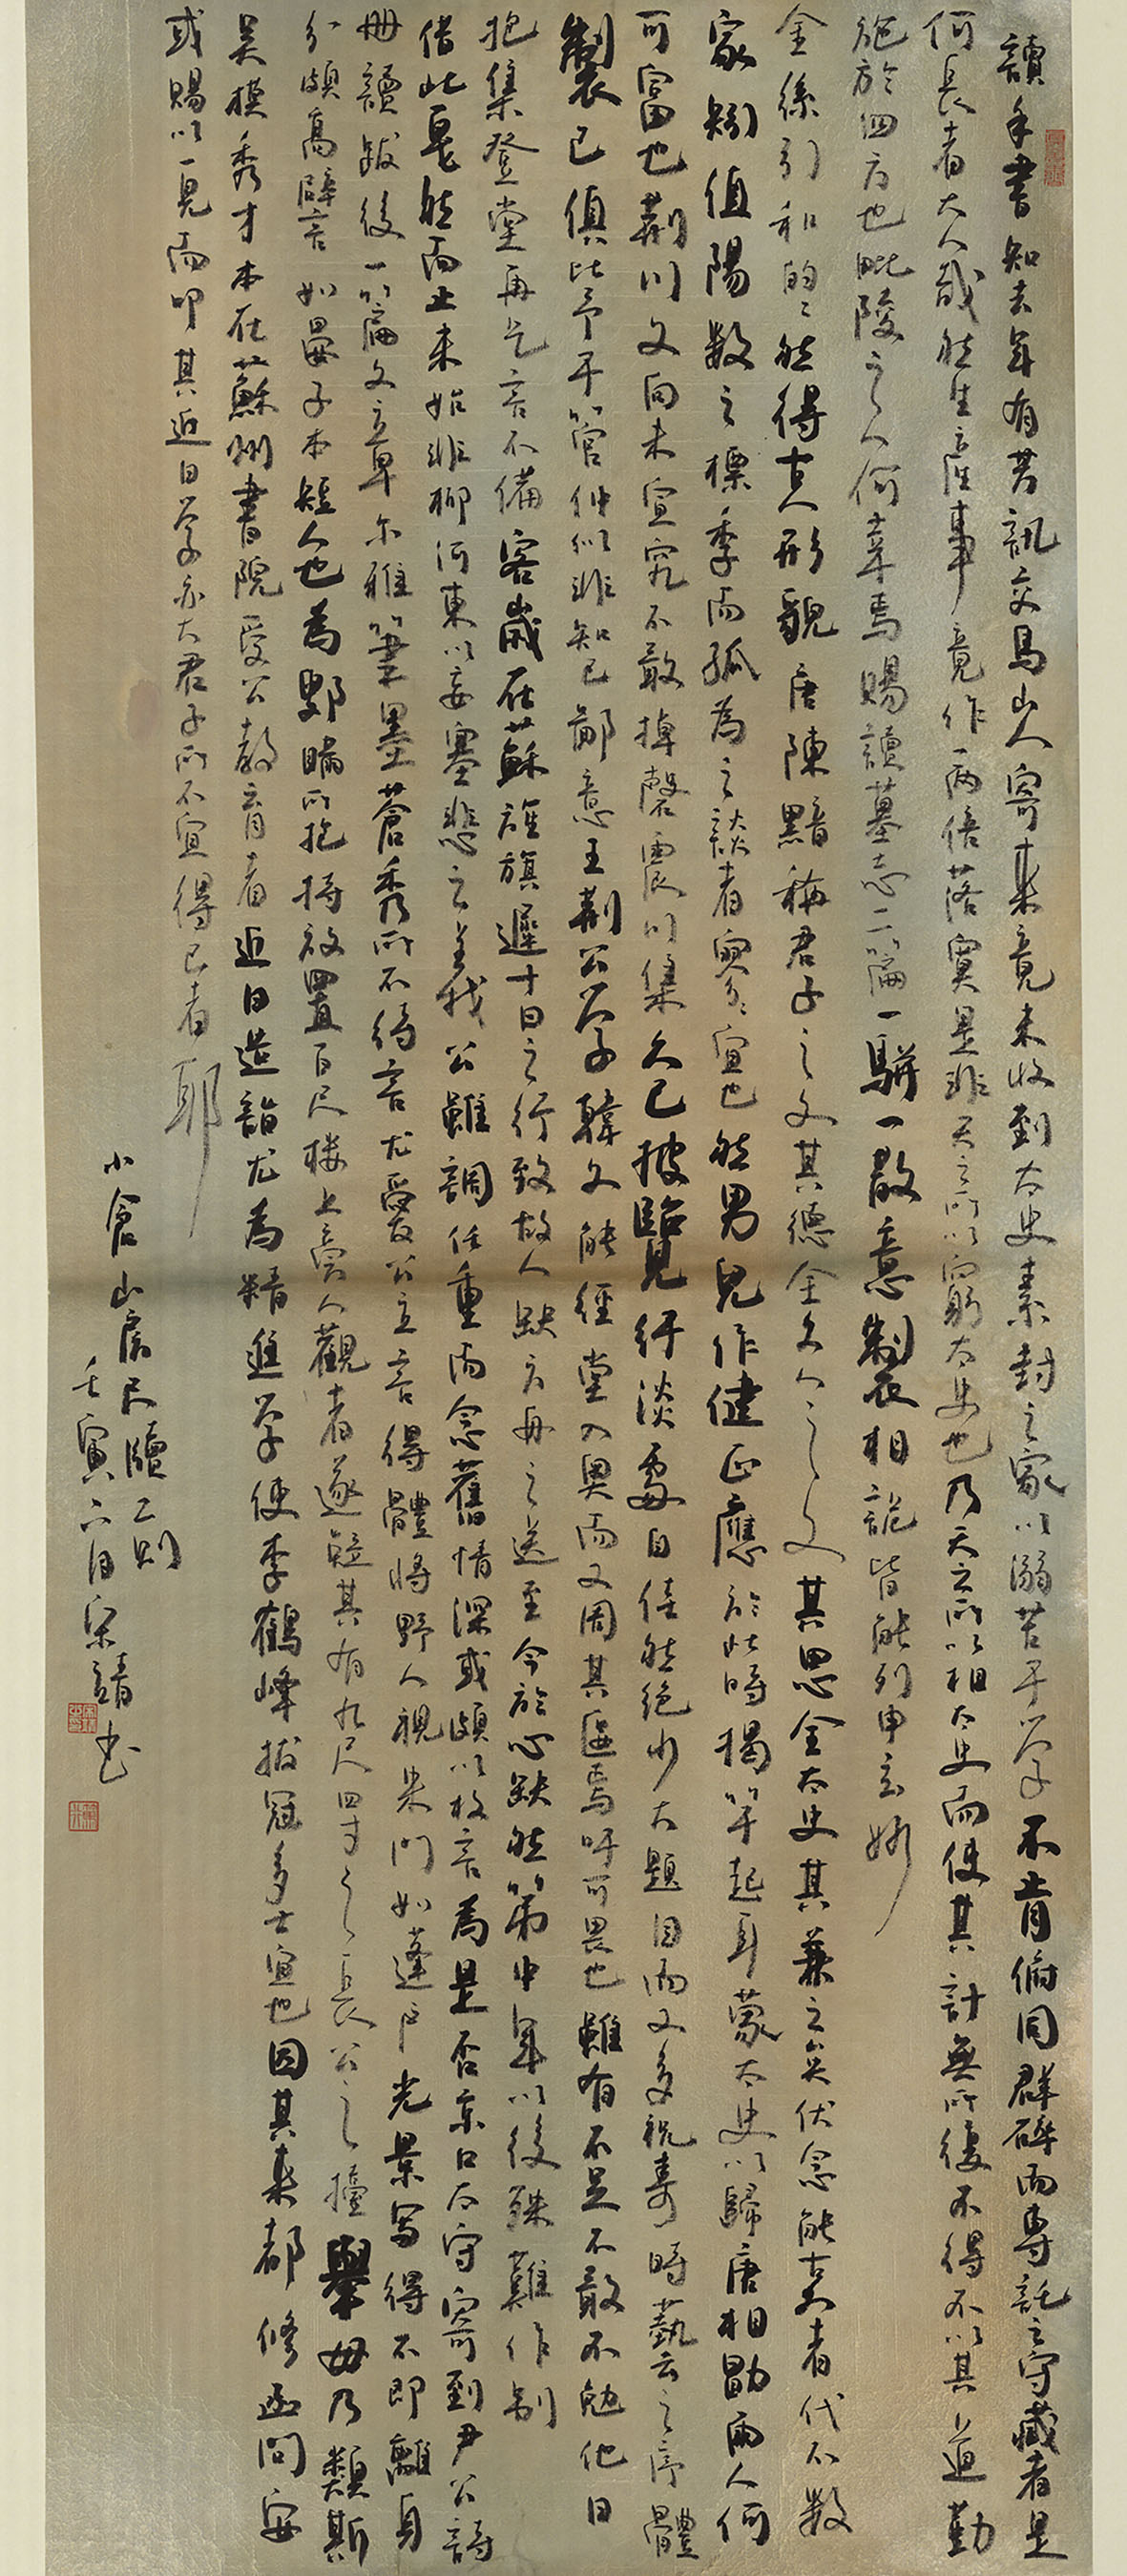 讀手書知去年有芳訊交馬山人寄來竟未收到太史素封之家以溺苦于學不肯俯同群碎而專託之守藏者是
何長者大人哉然生產事竟作兩倍落寞是非天之所以窮太史也乃天之所以相太史而使其計無所復不得不以其道勤
施於四方也毗陵之人何幸焉賜讀墓志二篇一駢一散意製相詭皆能列申玄妙
金絲引和的的然得古人形貌唐陳黯稱君子之文其德全文人之文其思全太史其兼之矣伏念能古文者代不數
家剏值陽數之標季而孤為之談者寥寥宜也然男兒作健正應於此時揭竿起耳蒙太史以歸唐相勖兩人何
可當也荊川文向未宣究不敢掉罄震川集久已披覽紆淡處自佳然絕少大題目而又多祝壽時藝云之序體
製已俱比予于管仲似非知己鄙意王荊公學韓文能經堂入奧而又周其匽焉吁可畏也雖有不足不敢不勉他日
抱集登堂再乞言不備客歲在蘇旌旗遲十日之行致故人缺一舟之送至今於心缺然第中年以後殊難作別
借此戛然而止未始非柳河東以妄塞悲之羊我公雖調任重而念舊情深或頗以枚言為是否京口太守寄到尹公詩
冊讀跋後一篇文章爾雅筆墨蒼秀所不待言尤愛公立言得體將野人視朱門如蓬戶光景寫得不即離身
分頗高辟言如晏子本短人也為鄋瞞所抱持放置百尺樓上齊人觀者遂疑其有九尺四寸之長公之擡舉毋乃類斯
吳模秀才本在蘇州書院受公教育者近日造詣尤為精進學使李鶴峰拔冠多士宜也因其來都修函問安
或賜以一見而叩其近日學亦大君子所不宜得已者耶
小倉山房尺牘二則
壬寅六月宋靖書